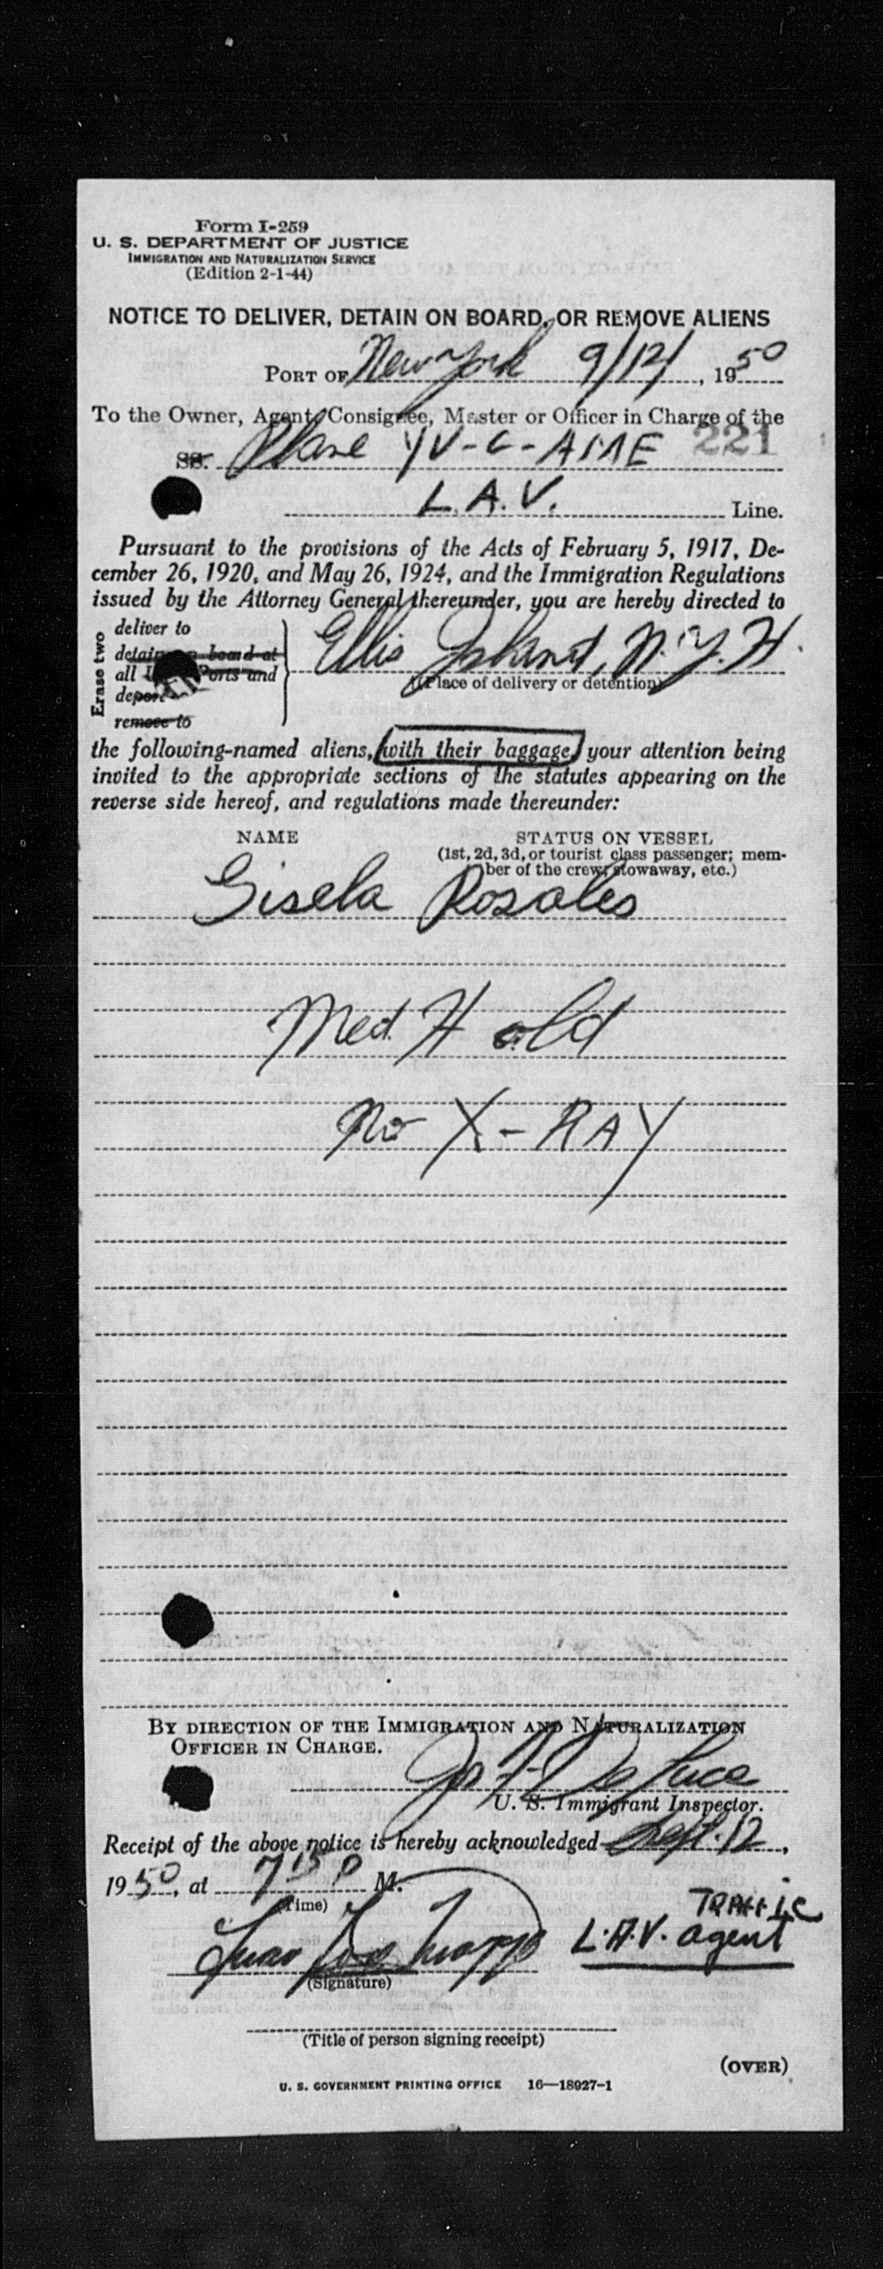 Form I-259
U. S. DEPARTMENT OF JUSTICE
IMMIGRATION AND NATURALIZATION SERVICE
(Edition 2-1-44)
NOTICE TO DELIVER, DETAIN ON BOARD, OR REMOVE ALIENS
PORT OF New York 9/12/, 1950
To the Owner, Agent, Consignee, Master or Officer in Charge of the
SS. Plane YV-C-AME 221
L.A.V. Line.
Pursuant to the provisions of the Acts of February 5, 1917, De-
cember 26, 1920, and May 26, 1924, and the Immigration Regulations
issued by the Attorney General thereunder, you are hereby directed to
Erase two
deliver to
detain on board at
all Ports and
deport
remove to
Ellis Island, N.Y.H.
(Place of delivery or detention)
the following-named aliens, with their baggage, your attention being
invited to the appropriate sections of the statutes appearing on the
reverse side hereof, and regulations made thereunder:
NAME STATUS ON VESSEL
(1st, 2d, 3d, or tourist class passenger; mem-
ber of the crew, stowaway, etc.)
Gisela Rosales
Med. Hold
No X-RAY
BY DIRECTION OF THE IMMIGRATION AND NATURALIZATION
OFFICER IN CHARGE.
De Luca
U. S. Immigrant Inspector.
Receipt of the above notice is hereby acknowledged Sept. 12,
1950, at 7 15 P M.
(Time)
TRAFFIC
Juan L.A.V. agent
(Signature)
(Title of person signing receipt)
(OVER)
U. S. GOVERNMENT PRINTING OFFICE 16—18927-1